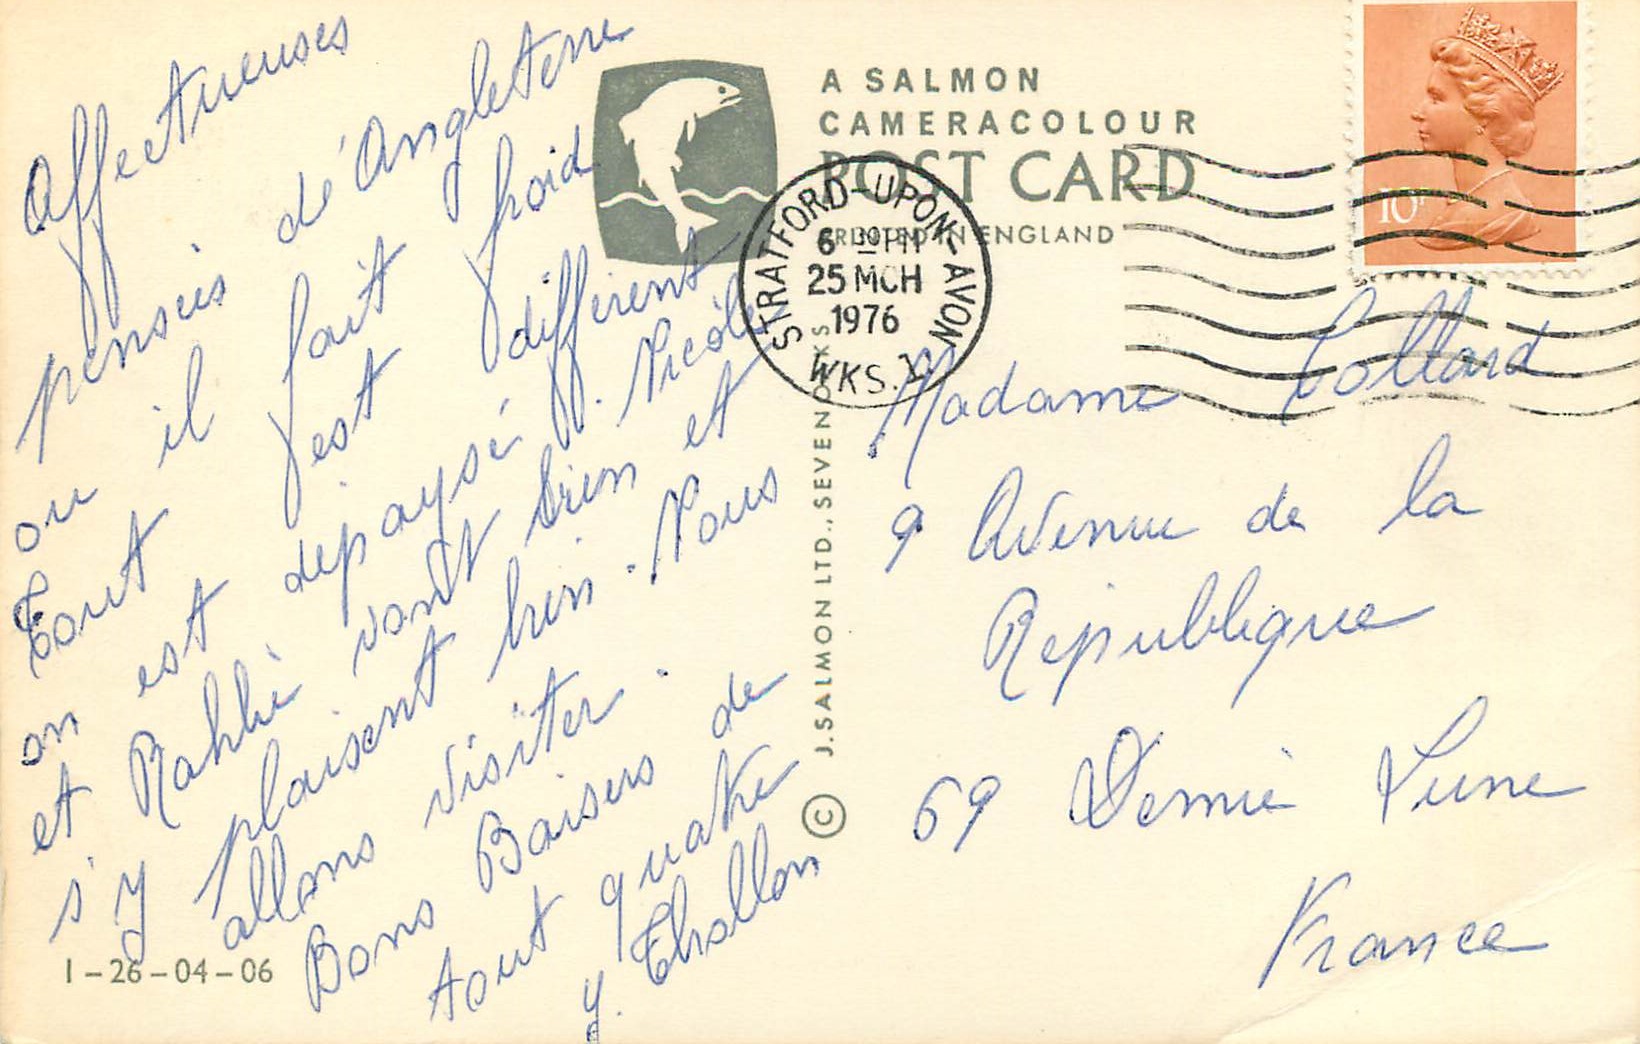 Affectueuses
pensées de Angleterre
ou il fait froid
tout est différent
on est dépaysé. Nicole
et vont bien et
s'y plaisent bien. Nous
allons visiter.
Bons Baisers de
tout quatre
y. Chollon
1-26-04-06
A SALMON
CAMERACOLOUR
POST CARD
PRINTED IN ENGLAND
STRATFORD-UPON-AVON
6- PM
25 MCH
1976
WKS.
10P
© J. SALMON LTD., SEVENOAKS
Madame Collard
9 Avenue de la
République
69 Demie Lune
France